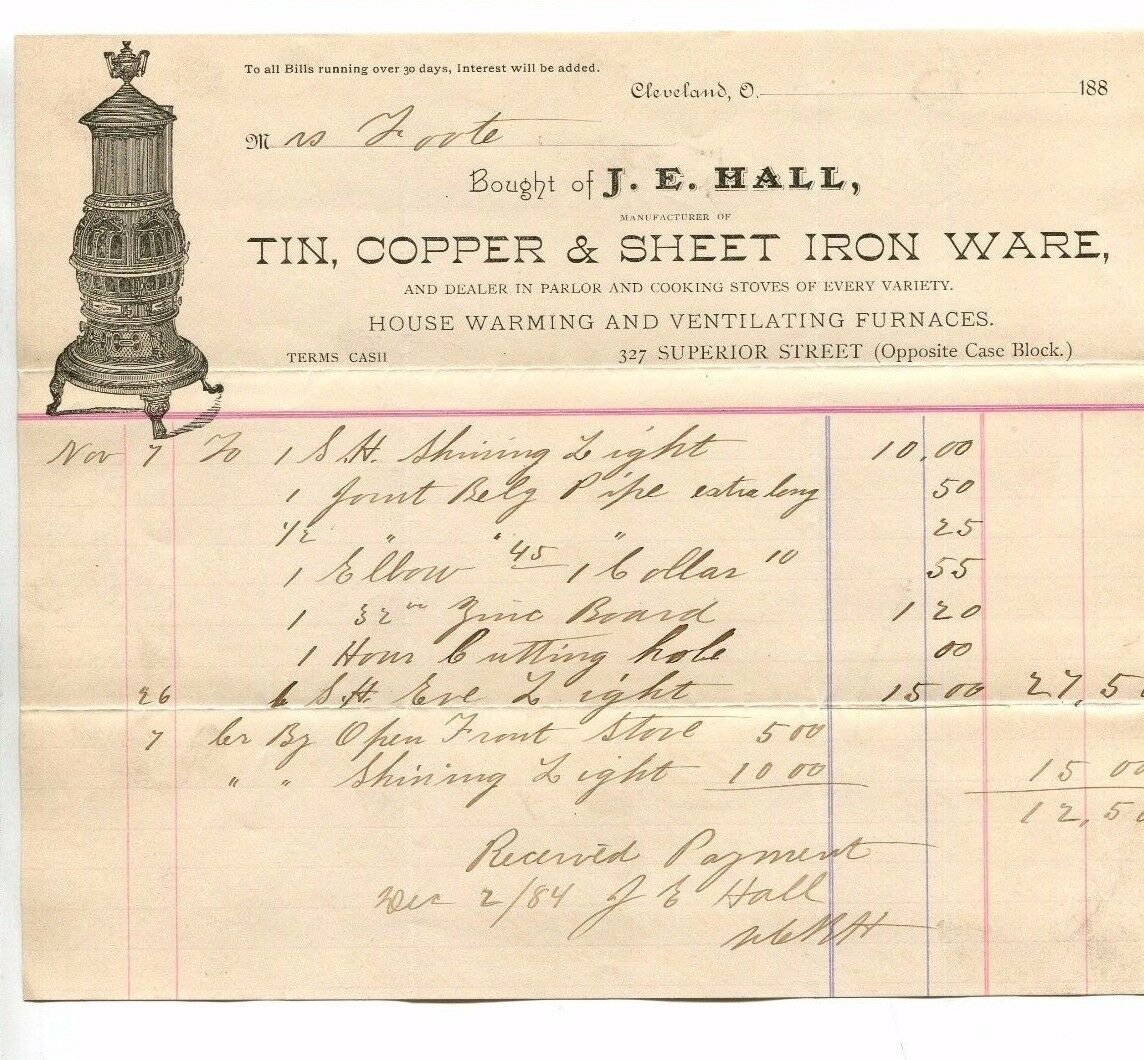 To all Bills running over 30 days, Interest will be added.
Cleveland, O. 188
Mrs Foote
Bought of J. E. HALL,
MANUFACTURER OF
TIN, COPPER & SHEET IRON WARE,
AND DEALER IN PARLOR AND COOKING STOVES OF EVERY VARIETY.
HOUSE WARMING AND VENTILATING FURNACES.
TERMS CASH 327 SUPERIOR STREET (Opposite Case Block.)
Nov 7 To 1 S.H. Shining Light 10.00
1 Joint Belg Pipe extra long 50
1/2 " " " 25
1 Elbow 45 1 Collar 10 55
1 32 in Zinc Board 1 20
1 Hour Cutting hole 00
26 1 S.H. Eve Light 15 00 27,50
7 Cr By Open Front Stove 5 00
" " Shining Light 10 00 15 00
12,50
Received Payment
Dec 2/84 J E Hall